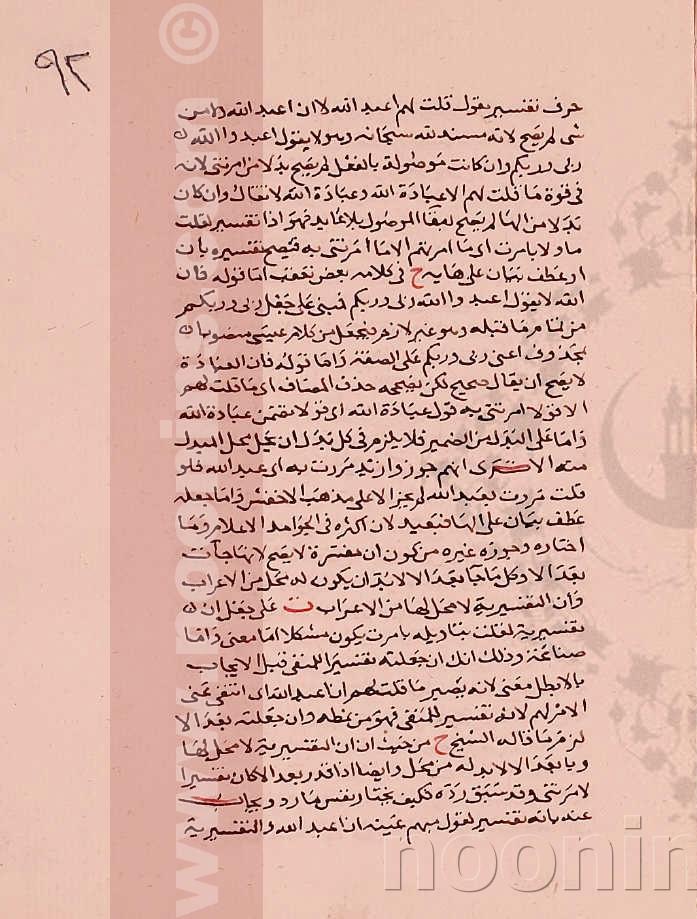 ٩٢
حرف تفسير يقول قلت لهم اعبد الله لا ان اعبد الله وا من
شى لم يصح لانه مسند لله سبحانه وهو لا يقول اعبدوا الله
ربى وربكم وان كانت موصولة بالفعل لم يصح بدلا من امرتنى لانه
فى قوة ما قلت لهم الا عبادة الله وعبادة الله لا تقال وان كان
بدلا من الها لم يصح لبقا الموصول بلا عايد فهو اذا تفسير لقلت
ماولا بامرت اى ما امرتهم الا ما امرتنى به فيصح تفسيره بان
او عطف بيان على هايه ح فى كلامه بعض تعقب اما قوله فان
الله لا يقول اعبدوا الله ربى وربكم فبنى على جعل ربى وربكم
من تمام ما قبله وهو غير لازم بجعل من كلام عيسى منصوبا
بمحذوف اعنى ربى وربكم على الصفة واما قوله فان العبادة
لا يصح ان يقال صحيح لكن يصححه حذف المضاف اى ما قلت لهم
الا قولا امرتنى به قول عبادة الله اى قولا يتضمن عبادة الله
واما على البدل من الضمير فلا يلزم فى كل بدل ان يحل محل المبدل
منه الا ترى انهم جوزوا زيد مررت به اى عبد الله فلو
قلت مررت بعبد الله لم يجز الا على مذهب الاخفش واما جعله
عطف بيان على الها فبعيد لان اكثره فى الجوامد الاعلام وما
اختاره وجوزه غيره من كون ان مفسرة لا يصح لانها جآت
بعد الا وكل ما جا بعد الا لابد ان يكون له محل من الاعراب
وأن التفسيرية لا محل لها من الاعراب ت على جعل ان
تفسيرية لقلت بتاويله بامرت يكون مشكلا اما معنى واما
صناعة وذلك انك ان جعلته تفسيرا للمنفى قبل الايجاب
بالا بطل معنى لانه يصير ما قلت لهم ان اعبد الله اى انتفى عنى
الامر لهم لانه تفسير للمنفى فهو من نمطه وان جعلته بعد الا
لزم ما قاله الشيخ ح من حيث ان ان التفسيرية لا محل لها
وما بعد الا لابد له من محل وايضا اذا قدر بعد الا كان تفسيرا
لامرتنى وقد سبق رده فكيف يختار نفس ما رد ويجاب
عنه بانه تفسير لقول مبهم عينه ان اعبد الله والتفسيرية
www.noorlib
noorin